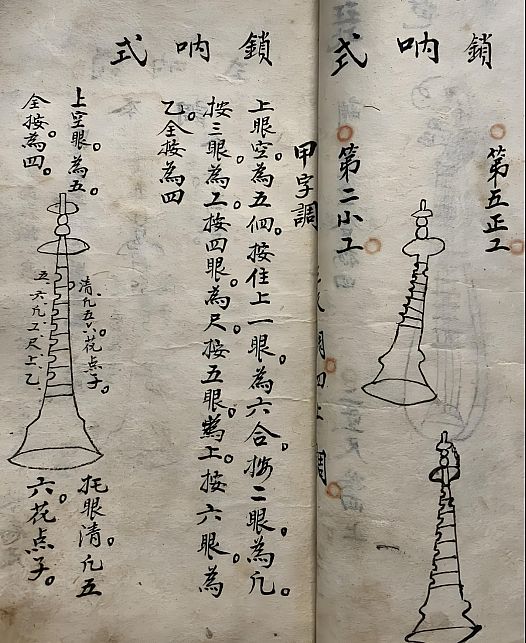 鎖吶式
第五正工
第二小工
鎖吶式
甲字調
上眼空。為五㐰。按住上一眼。為六合。按二眼。為凡。
按三眼。為工。按四眼。為尺。按五眼。為上。按六眼。為
乙。全按為四
上空眼。為五。
全按。為四。
清凡五六。花点子。
五、六、凡、工、尺、上、乙、
托眼清。凡五
六。花点子。